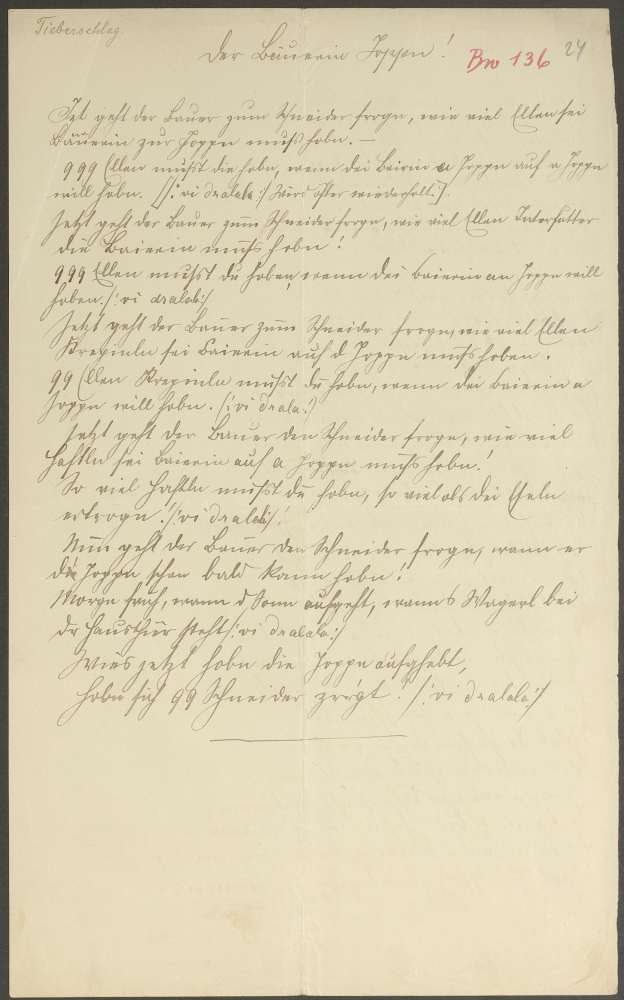 Tieberschlag.
Der Bäuerin Joppn! Bw 136 24
Izt geht der Bauer zum Schneider frogn, wie viel Ellen sei
Bäuerin zur Joppn muß hobn. —
999 Ellen mußt die hobn, wenn dei Bairin a Joppn auf a Joppn
will hobn. /: vi dralala :/ Wird öfter wiederholt. :/
Jetzt geht der Bauer zum Schneider frogn, wie viel Ellen Interfutter
die Baierin muß hobn!
999 Ellen mußt du hoben, wenn dei Baierin an Joppn will
hoben. /: vi dralala :/
Jetzt geht der Bauer zum Schneider frogn, wie viel Ellen
Krepinln sei Baierin auf d Joppn muß hoben.
99 Ellen Krepinln mußt du hobn, wenn dei Baierin a
Joppn will hobn. /: vi drala :/
Jetzt geht der Bauer den Schneider frogn, wie viel
Haftln sei Baierin auf a Joppn muß hobn!
So viel Haftln mußt du hobn, so viel als dei Eseln
ertrogn! /: vi dralala :/!
Nun geht der Bauer den Schneider frogn, wann er
die Joppn schon bald kann hobn!
Morgn fruh, wann d Sonn aufgeht, wanns Wagerl bei
dr Hausthür steht /: vi dralala :/
Wies jetzt hobn die Joppn aufghebt,
hobn sich 99 Schneider zrigt! /: vi dralala :/